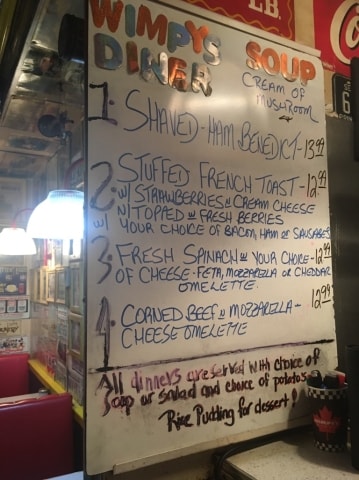 WIMPY'S
DINER
SOUP
CREAM OF
MUSHROOM
LB.
Co
6
1. SHAVED-HAM BENEDICT-13.99
2. STUFFED FRENCH TOAST-12.99
W/ STRAWBERRIES & CREAM CHEESE
N/ TOPED W FRESH BERRIES
W/ YOUR CHOICE OF BACON, HAM or SAUSAGES
3. FRESH SPINACH W YOUR CHOICE-12.99
OF CHEESE-FETA, MOZZARELLA OR CHEDDAR
OMELETTE.
4. CORNED BEEF & MOZZARELLA- 12.99
CHEESE OMELETTE
All dinners are served with choice of
soup or salad and choice of potato's
Rice Pudding for dessert!